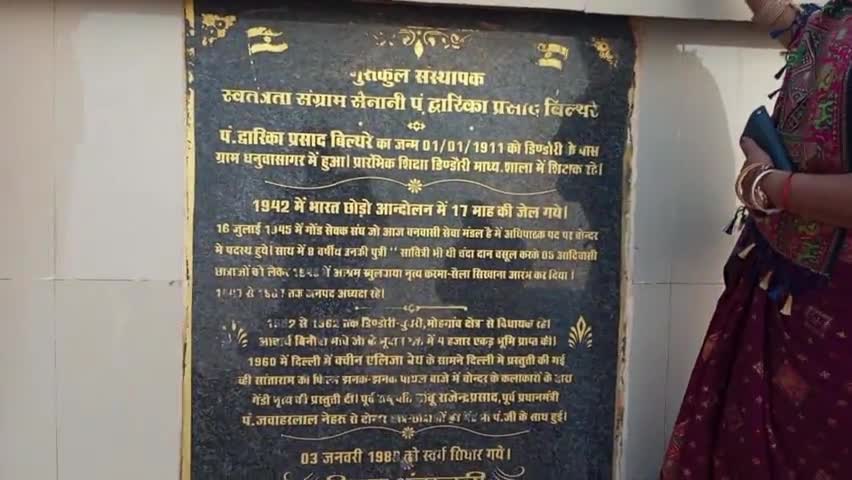 गुरुकुल संस्थापक
स्वतंत्रता संग्राम सेनानी पं. द्वारिका प्रसाद बिल्थरे
पं. द्वारिका प्रसाद बिल्थरे का जन्म 01/01/1911 को डिण्डोरी के पास
ग्राम धनुवासागर में हुआ। प्रारंभिक शिक्षा डिण्डोरी माध्य. शाला में शिक्षक रहे।
1942 में भारत छोड़ो आन्दोलन में 17 माह की जेल गये।
16 जुलाई 1945 में गोंड सेवक संघ जो आज वनवासी सेवा मंडल है में अधिपाठक पद पर
मे पदस्थ हुये। साथ में 8 वर्षीय उनकी पुत्री '' सावित्री भी थी चंदा दान वसूल करके 05 आदिवासी
छात्राओं को लेकर में आश्रम नृत्य करमा-सैला सिखाना आरंभ कर दिया।
से तक जनपद अध्यक्ष रहे।
से 1962 तक डिण्डोरी- मोहगांव क्षेत्र से विधायक रहे।
आचार्य बिनोवा भावे जी के में 4 हजार एकड़ भूमि प्राप्त की।
1960 में दिल्ली में क्वीन एलिजा बेथ के सामने दिल्ली मे प्रस्तुती की गई
व्ही सांताराम की फिल्म झनक-झनक पायल बाजे में के कलाकारों के द्वारा
गेंडी नृत्य की प्रस्तुती दी। पूर्व बाबू राजेन्द्र प्रसाद, पूर्व प्रधानमंत्री
पं. जवाहरलाल नेहरू से पं.जी के साथ हुई।
03 जनवरी को स्वर्ग सिधार गये।